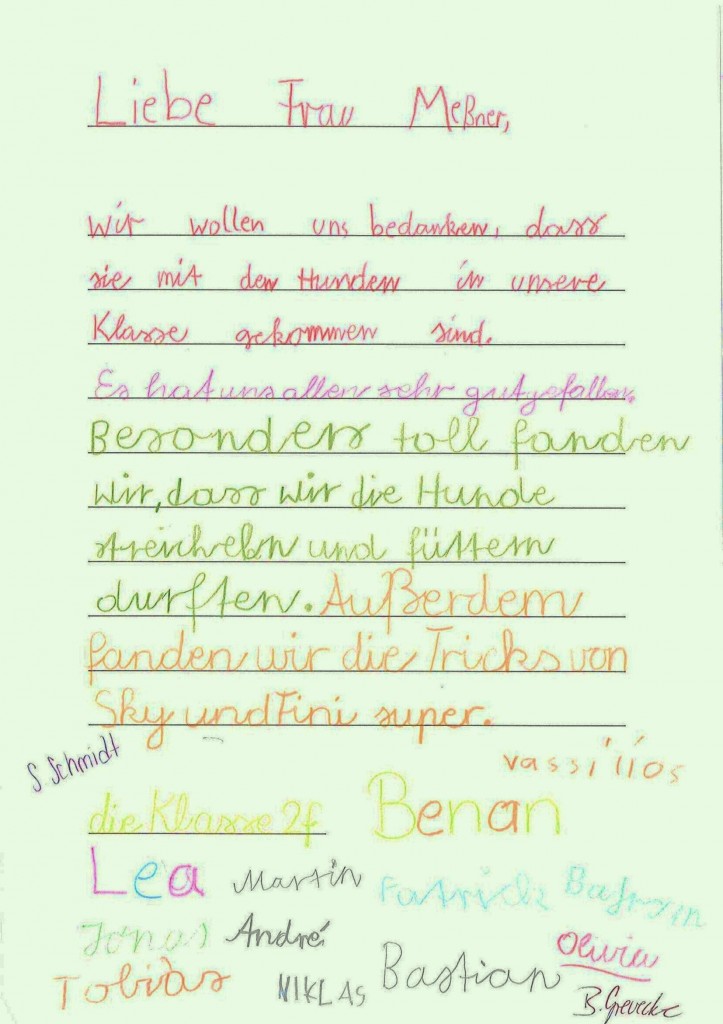 Liebe Frau Meßner,
wir wollen uns bedanken, dass
sie mit den Hunden in unsere
Klasse gekommen sind.
Es hat uns allen sehr gut gefallen.
Besonders toll fanden
wir, dass wir die Hunde
streicheln und füttern
durften. Außerdem
fanden wir die Tricks von
Sky und Fini super.
S. Schmidt
vassilios
die Klasse 2f Benan
Lea Martin Patrick
Jonas André Olivia
Tobias NIKLAS Bastian